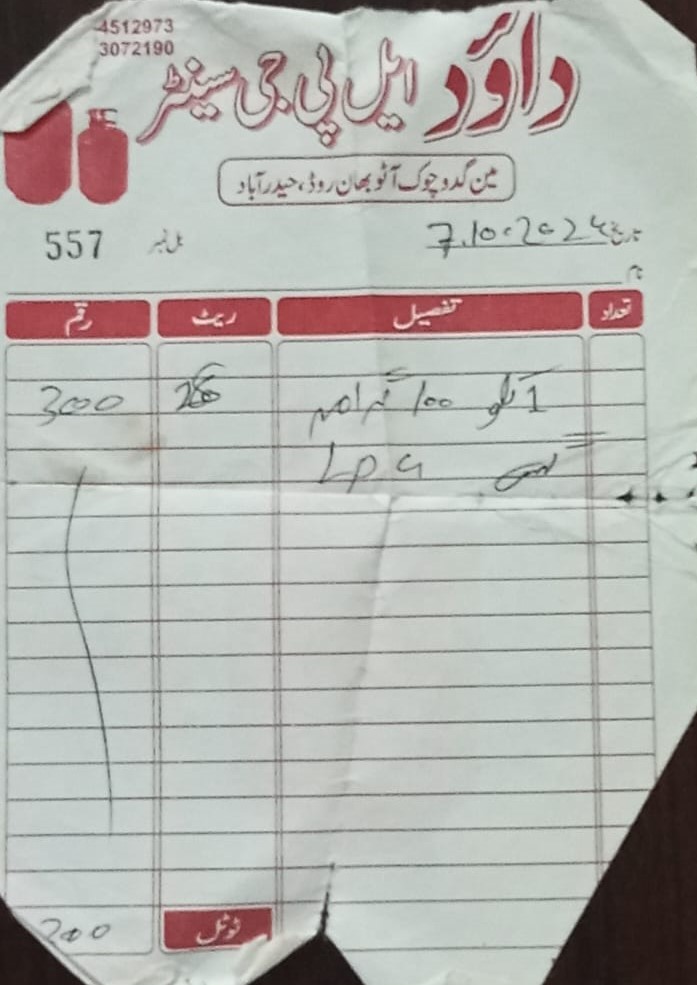 4512973
3072190
داؤد ایل پی جی سینٹر
مین گدو چوک آٹو بھان روڈ، حیدرآباد
تاریخ 7.10.2024
بل نمبر 557
نام
تعداد تفصیل ریٹ رقم
1 کلو 100 گرام 300
LPG
ٹوٹل